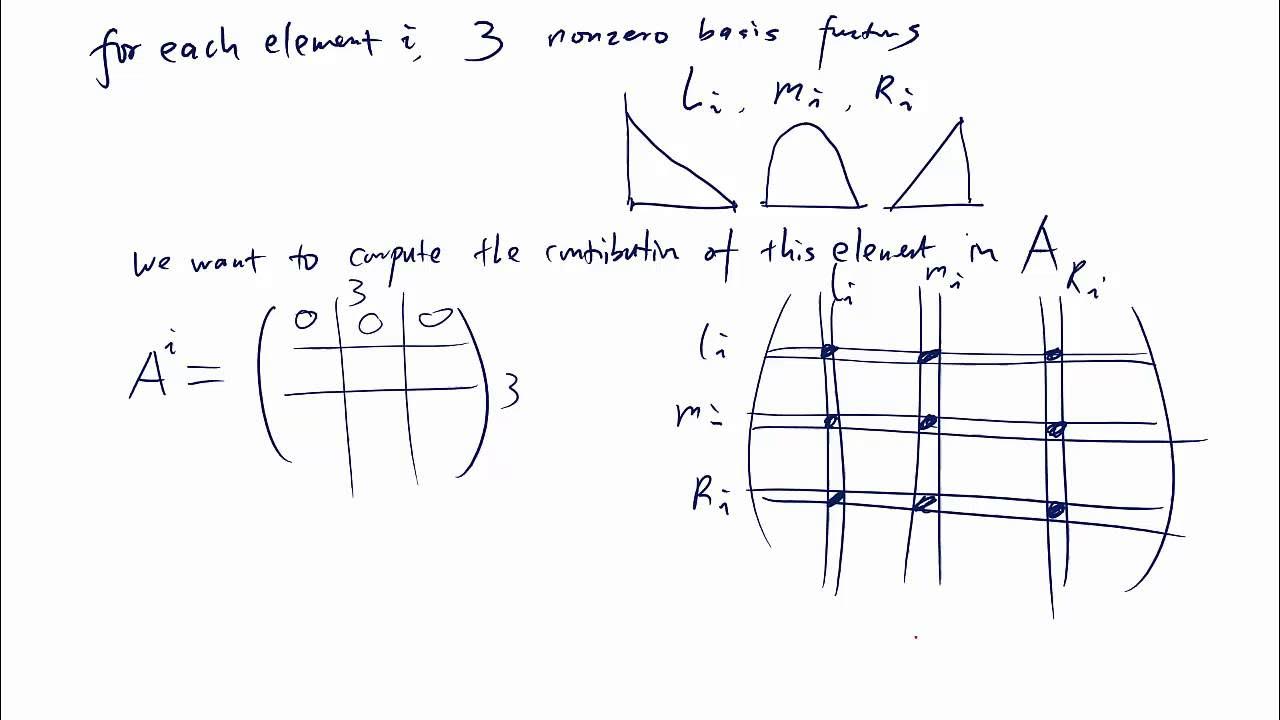 for each element i, 3 nonzero basis functns
Li, mi, Ri
we want to compute the contributin of this element in A
Li mi Ri
3
0 0 0
A^i =
3
li
mi
Ri